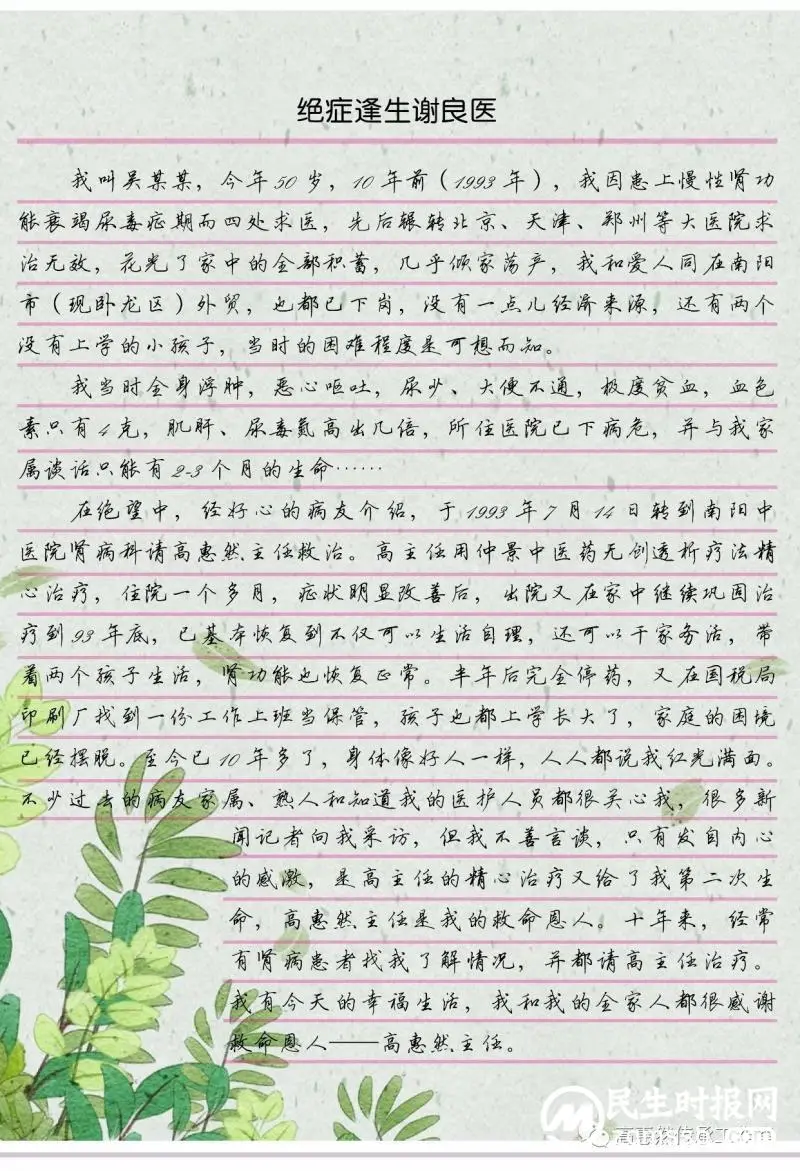 绝症逢生谢良医
我叫吴某某，今年50岁，10年前（1993年），我因患上慢性肾功
能衰竭尿毒症期而四处求医，先后辗转北京、天津、郑州等大医院求
治无效，花光了家中的全部积蓄，几乎倾家荡产，我和爱人同在南阳
市（现卧龙区）外贸，也都已下岗，没有一点儿经济来源，还有两个
没有上学的小孩子，当时的困难程度是可想而知。
我当时全身浮肿，恶心呕吐，尿少、大便不通，极度贫血，血色
素只有4克，肌肝、尿毒氮高出几倍，所住医院已下病危，并与我家
属谈话只能有2-3个月的生命……
在绝望中，经好心的病友介绍，于1993年7月14日转到南阳中
医院肾病科请高惠然主任救治。高主任用仲景中医药无创透析疗法精
心治疗，住院一个多月，症状明显改善后，出院又在家中继续巩固治
疗到93年底，已基本恢复到不仅可以生活自理，还可以干家务活，带
着两个孩子生活，肾功能也恢复正常。半年后完全停药，又在国税局
印刷厂找到一份工作上班当保管，孩子也都上学长大了，家庭的困境
已经摆脱。至今已10年多了，身体像好人一样，人人都说我红光满面。
不少过去的病友家属、熟人和知道我的医护人员都很关心我，很多新
闻记者向我采访，但我不善言谈，只有发自内心
的感激，是高主任的精心治疗又给了我第二次生
命，高惠然主任是我的救命恩人。十年来，经常
有肾病患者找我了解情况，并都请高主任治疗。
我有今天的幸福生活，我和我的全家人都很感谢
救命恩人——高惠然主任。
民生时报网
高惠然传承